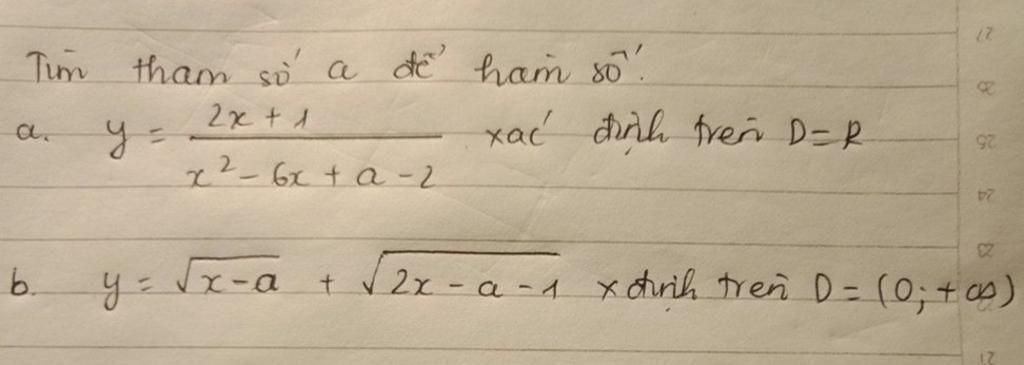 Tìm tham số a để hàm số:
a. y = (2x + 1)/(x² - 6x + a - 2) xác định trên D = R
b. y = √(x-a) + √(2x - a - 1) xđịnh trên D = (0; +∞)
27
26
25
24
23
21